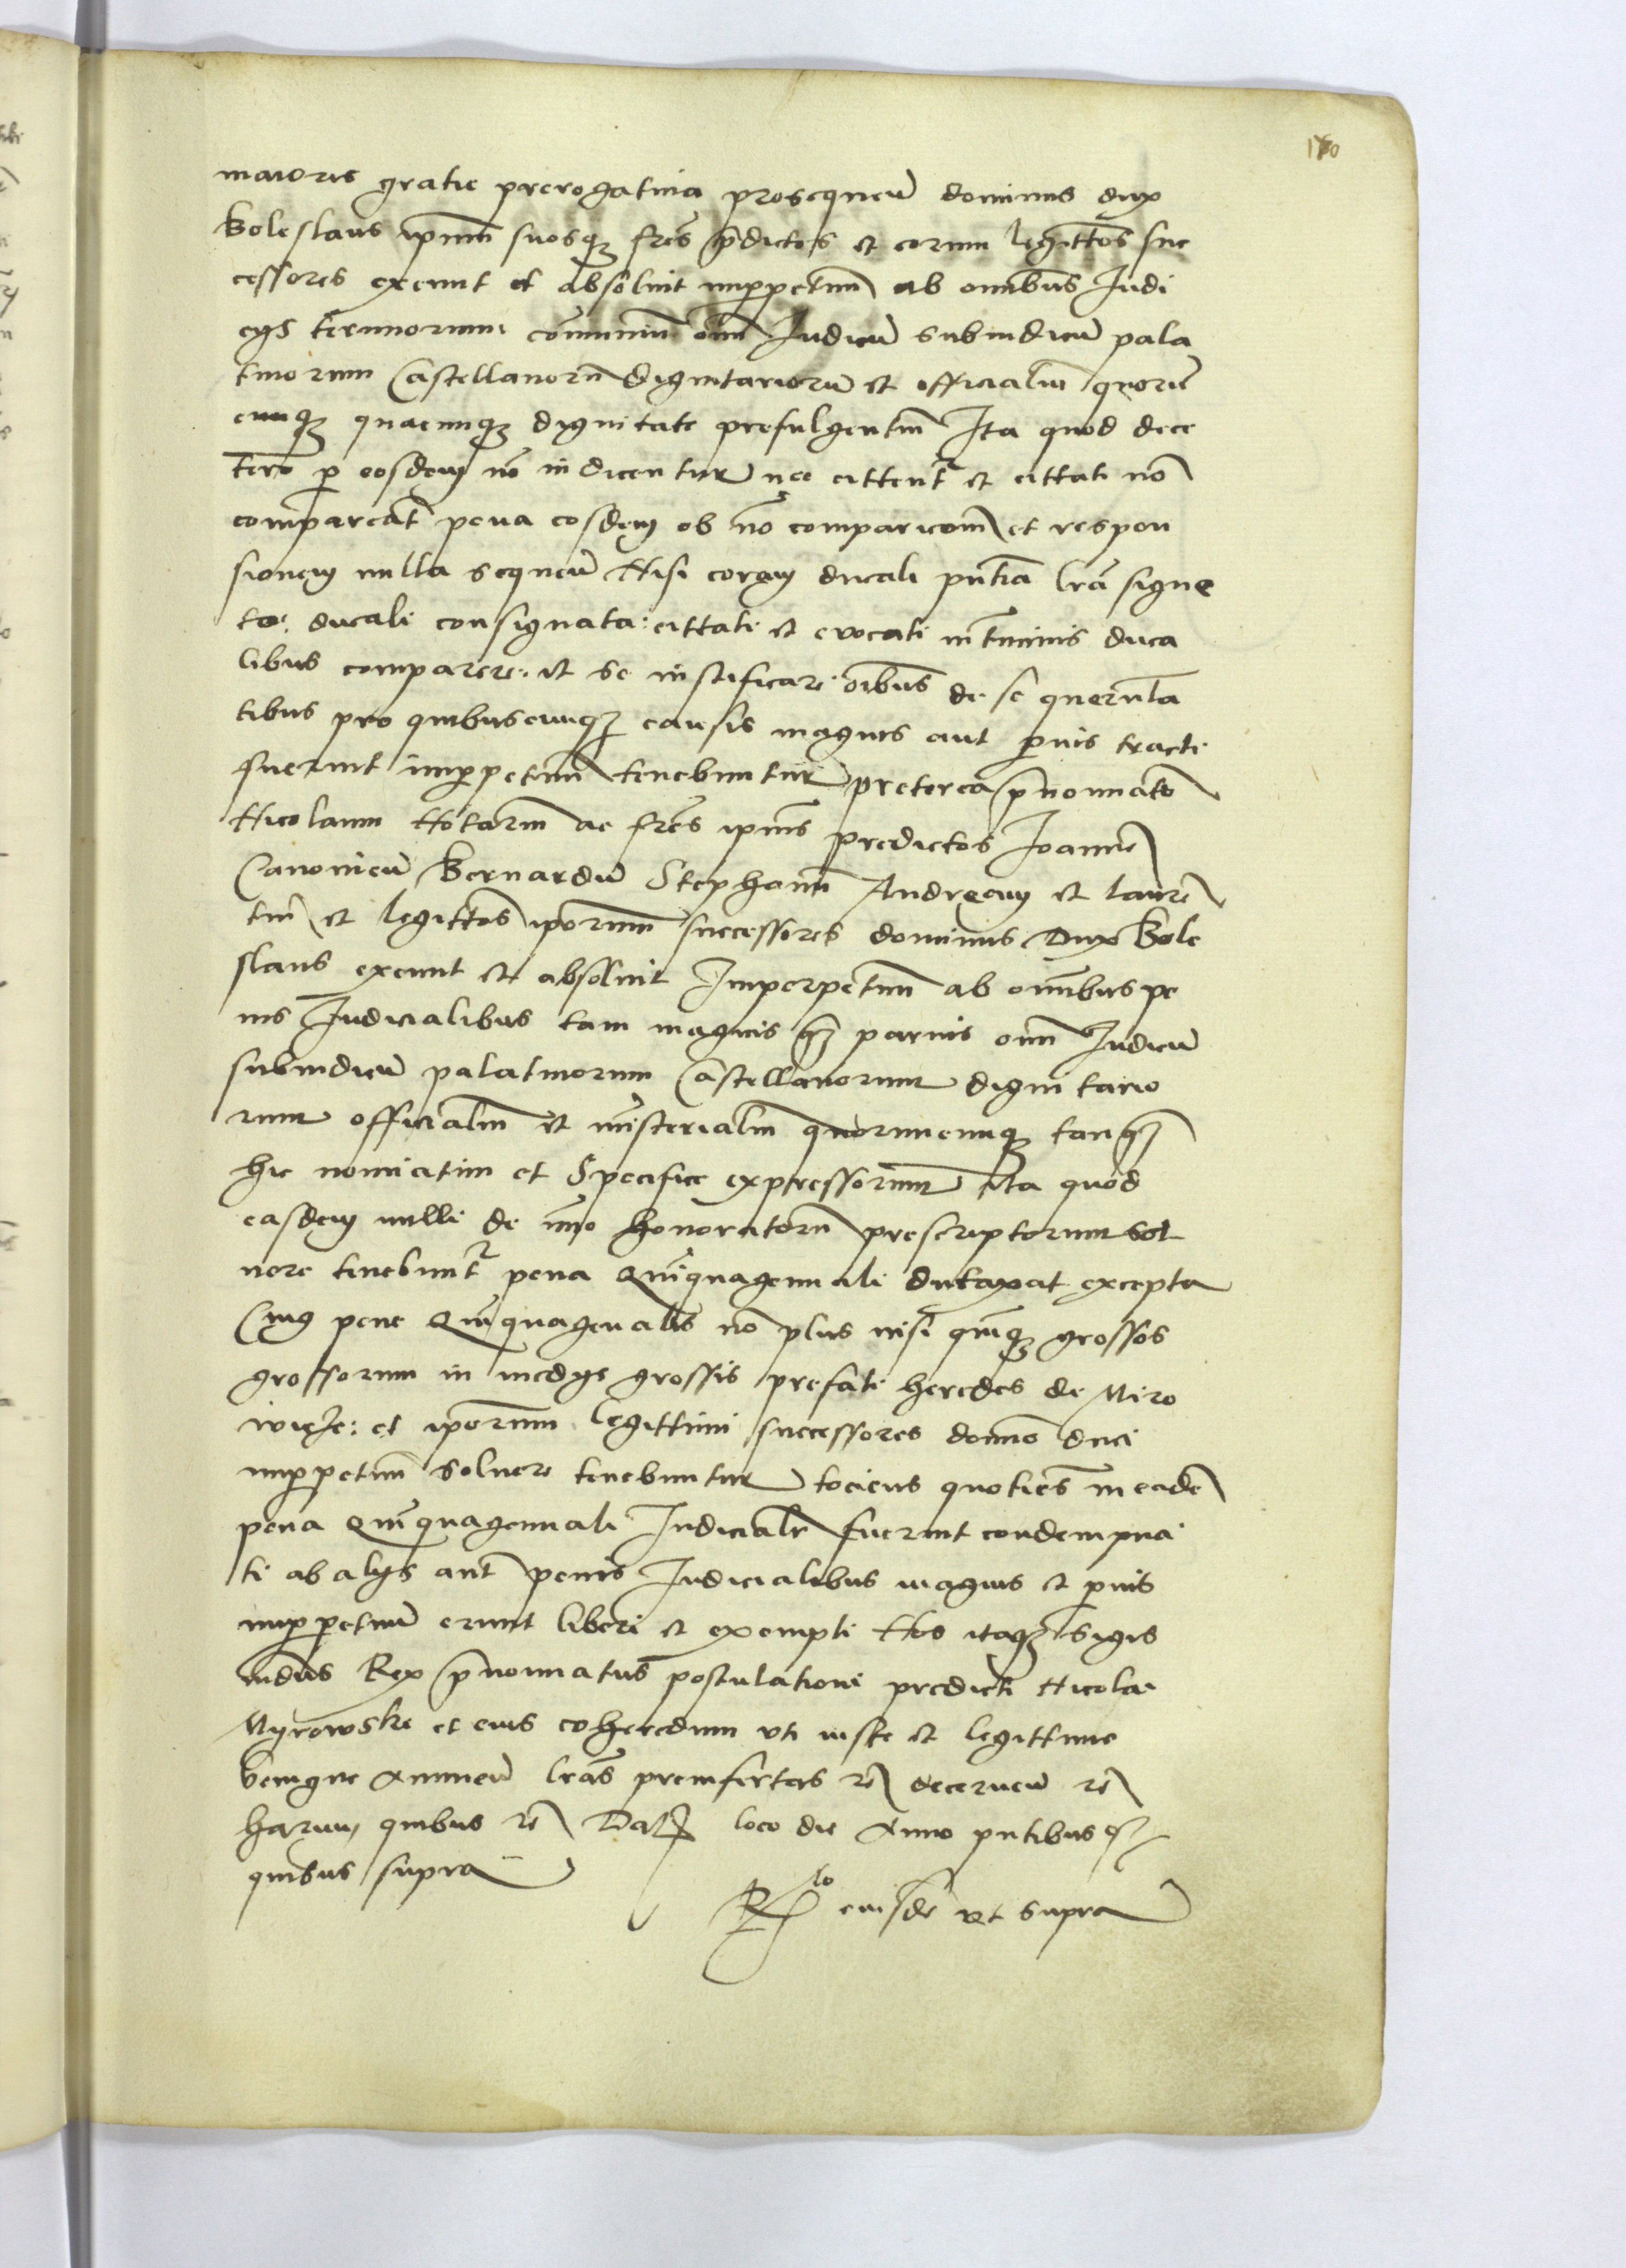 170
maioris gratie prerogativa prosequeñ dominus dux
Boleslaus ipm̄ suosq₃ fres p̄dictos et eorum legittos suc
cessores exemit et absolvit imp̱petuū ab omnibus Judi
cys terminorum cōmuniū om̄ Judicū subiudicū pala
tinorum Castellanorū dignitariorū et officialiū quorū
cunq₃ quacunq₃ dignitate prefulgentiū Ita quod dece
tero p̱ eosdem nō iudicentur nec cittent̄ et cittati nō
compareāt pena eosdem ob nō comparicōm̄ et respon
sionem nulla sequeñ Nisi coram ducali pn̄tia lrā signe
to ducali consignata: cittati et evocati in t̄minis duca
libus comparere: et se iustificare oībus de se querula
tibus pro quibuscunq₃ causis magnis aut p̱vis tracti
fuerint imp̱petuū tenebuntur preterea p̄nominato
Nicolaum Notariū ac fres ipius predictos Joannē
Canonicū Bernardū Stephanū Andream et laurē
tiū et legittos ipōrum successores dominus Dux Bole
slaus exemit et absolvit Imperpetuū ab omnibus pe
nis Judicialibus tam magnis q̄₃ parvis om̄ Judicū
subiudicū palatinorum Castellanorum dignitario
rum officialiū et misterialiū quorumcunq₃ tanq̄₃
hic nominatim et Specifice expressorum ita quod
easdem nulli de nūo honoratorū prescriptorum sol
vere tenebunt̄ pena Quīquagennali dutaxat excepta
Cuius pene Quīquagenalis nō plus nisi quīq₃ grossos
grossorum in medys grossis prefati heredes de Miro
wicze: et ipōrum legittimi successores domīo duci
imp̱petuū solvere tenebuntur tociens quotiēs in eadē
pena Quīquagennali Judicialr̄ fuerint condempna
ti ab alys aut̄ penis Judicialibus magnis et p̱vis
imp̱petuū erunt liberi et exempti Nos itaq₃ Sigis
mdūs Rex p̄nominatus postulationi predicti Nicolai
Myrowski et eius coheredum uti iuste et legittime
benigne Annueñ lras preinsertas rē decerneñ rē
harum quibus rē Datꝭ loco die Anno pn̄tibus q₃
quibus supra
Rlo eiusdē ut supra